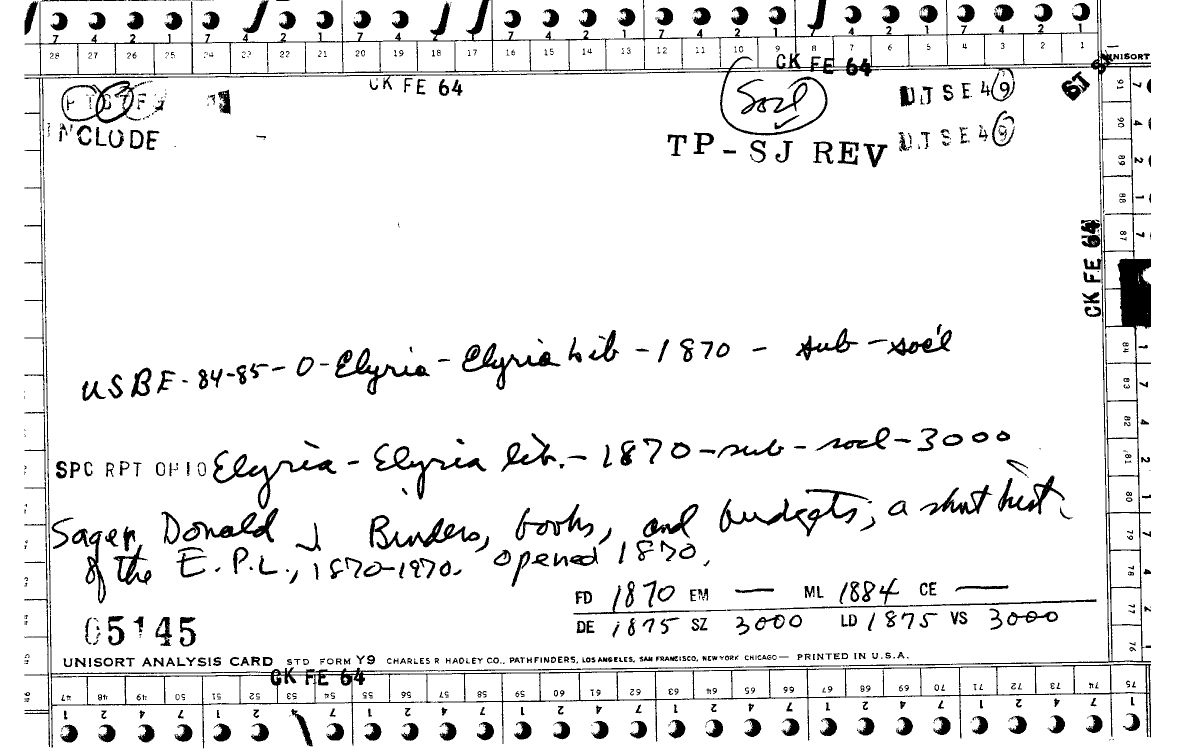 7 4 2 1 7 4 2 1 7 4 2 1 7 4 2 1 7 4 2 1 7 4 2 1 7 4 2 1
28 27 26 25 24 23 22 21 20 19 18 17 16 15 14 13 12 11 10 9 8 7 6 5 4 3 2 1 UNISORT
CK FE 64
CK FE 64
Soc'l
UJSE49
INCLUDE
TP-SJ REV UJSE49
CK FE 64
USBE-84-85-O-Elyria-Elyria Lib-1870-sub-soc'l
SPC RPT OHIO Elyria-Elyria lib.-1870-sub-socl-3000
Sager, Donald J Binders, books, and budgets; a short hist.
of the E.P.L., 1870-1970. Opened 1870.
FD 1870 EM — ML 1884 CE —
DE 1875 SZ 3000 LD 1875 VS 3000
05145
UNISORT ANALYSIS CARD STD FORM Y9 CHARLES R HADLEY CO., PATHFINDERS, LOS ANGELES, SAN FRANCISCO, NEW YORK CHICAGO— PRINTED IN U.S.A.
CK FE 64
47 48 49 50 51 52 53 54 55 56 57 58 59 60 61 62 63 64 65 66 67 68 69 70 71 72 73 74 75
1 2 4 7 1 2 4 7 1 2 4 7 1 2 4 7 1 2 4 7 1 2 4 7 1 2 4 7 1